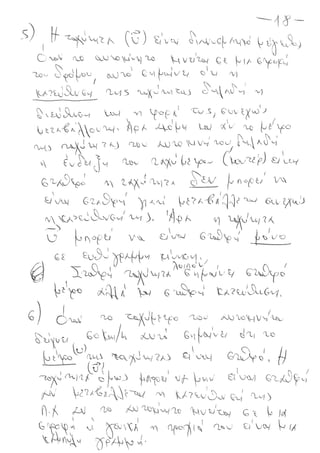 — 18 —
5) Η ταχύτητα (υ⃗) είναι διανυσματικό μέγεθος
Όταν το αυτοκίνητο κινείται σε μια στροφή
του δρόμου, αυτό σημαίνει ότι η
κατεύθυνση της ταχύτητας δηλαδή η
διεύθυνση και η φορά της, συνεχώς
μεταβάλλονται. Άρα ακόμη και αν το μέτρο
της ταχύτητας του αυτοκινήτου, δηλαδή
η ένδειξη του ταχύμετρου (κοντέρ) είναι
σταθερό η ταχύτητα δεν μπορεί να
είναι σταθερή γιατί μεταβάλλεται συνεχώς
η κατεύθυνσή της. Άρα η ταχύτητα
υ⃗ μπορεί να είναι σταθερή μόνο
σε ευθύγραμμη κίνηση.
Σταθερή ταχύτητα λοιπόν σημαίνει σταθερό
μέτρο αλλά και σταθερή κατεύθυνση.
6) Όταν το ταχύμετρο του αυτοκινήτου
δείχνει 60 km/h αυτό σημαίνει ότι το
μέτρο (υ) της ταχύτητας είναι σταθερό. Η
ταχύτητα (υ⃗) όμως μπορεί να μην είναι σταθερή
αν μεταβάλλεται η κατεύθυνσή της
Π.Χ αν το αυτοκίνητο κινείται σε μια
στροφή ή γενικά η τροχιά του είναι μια
καμπύλη γραμμή.